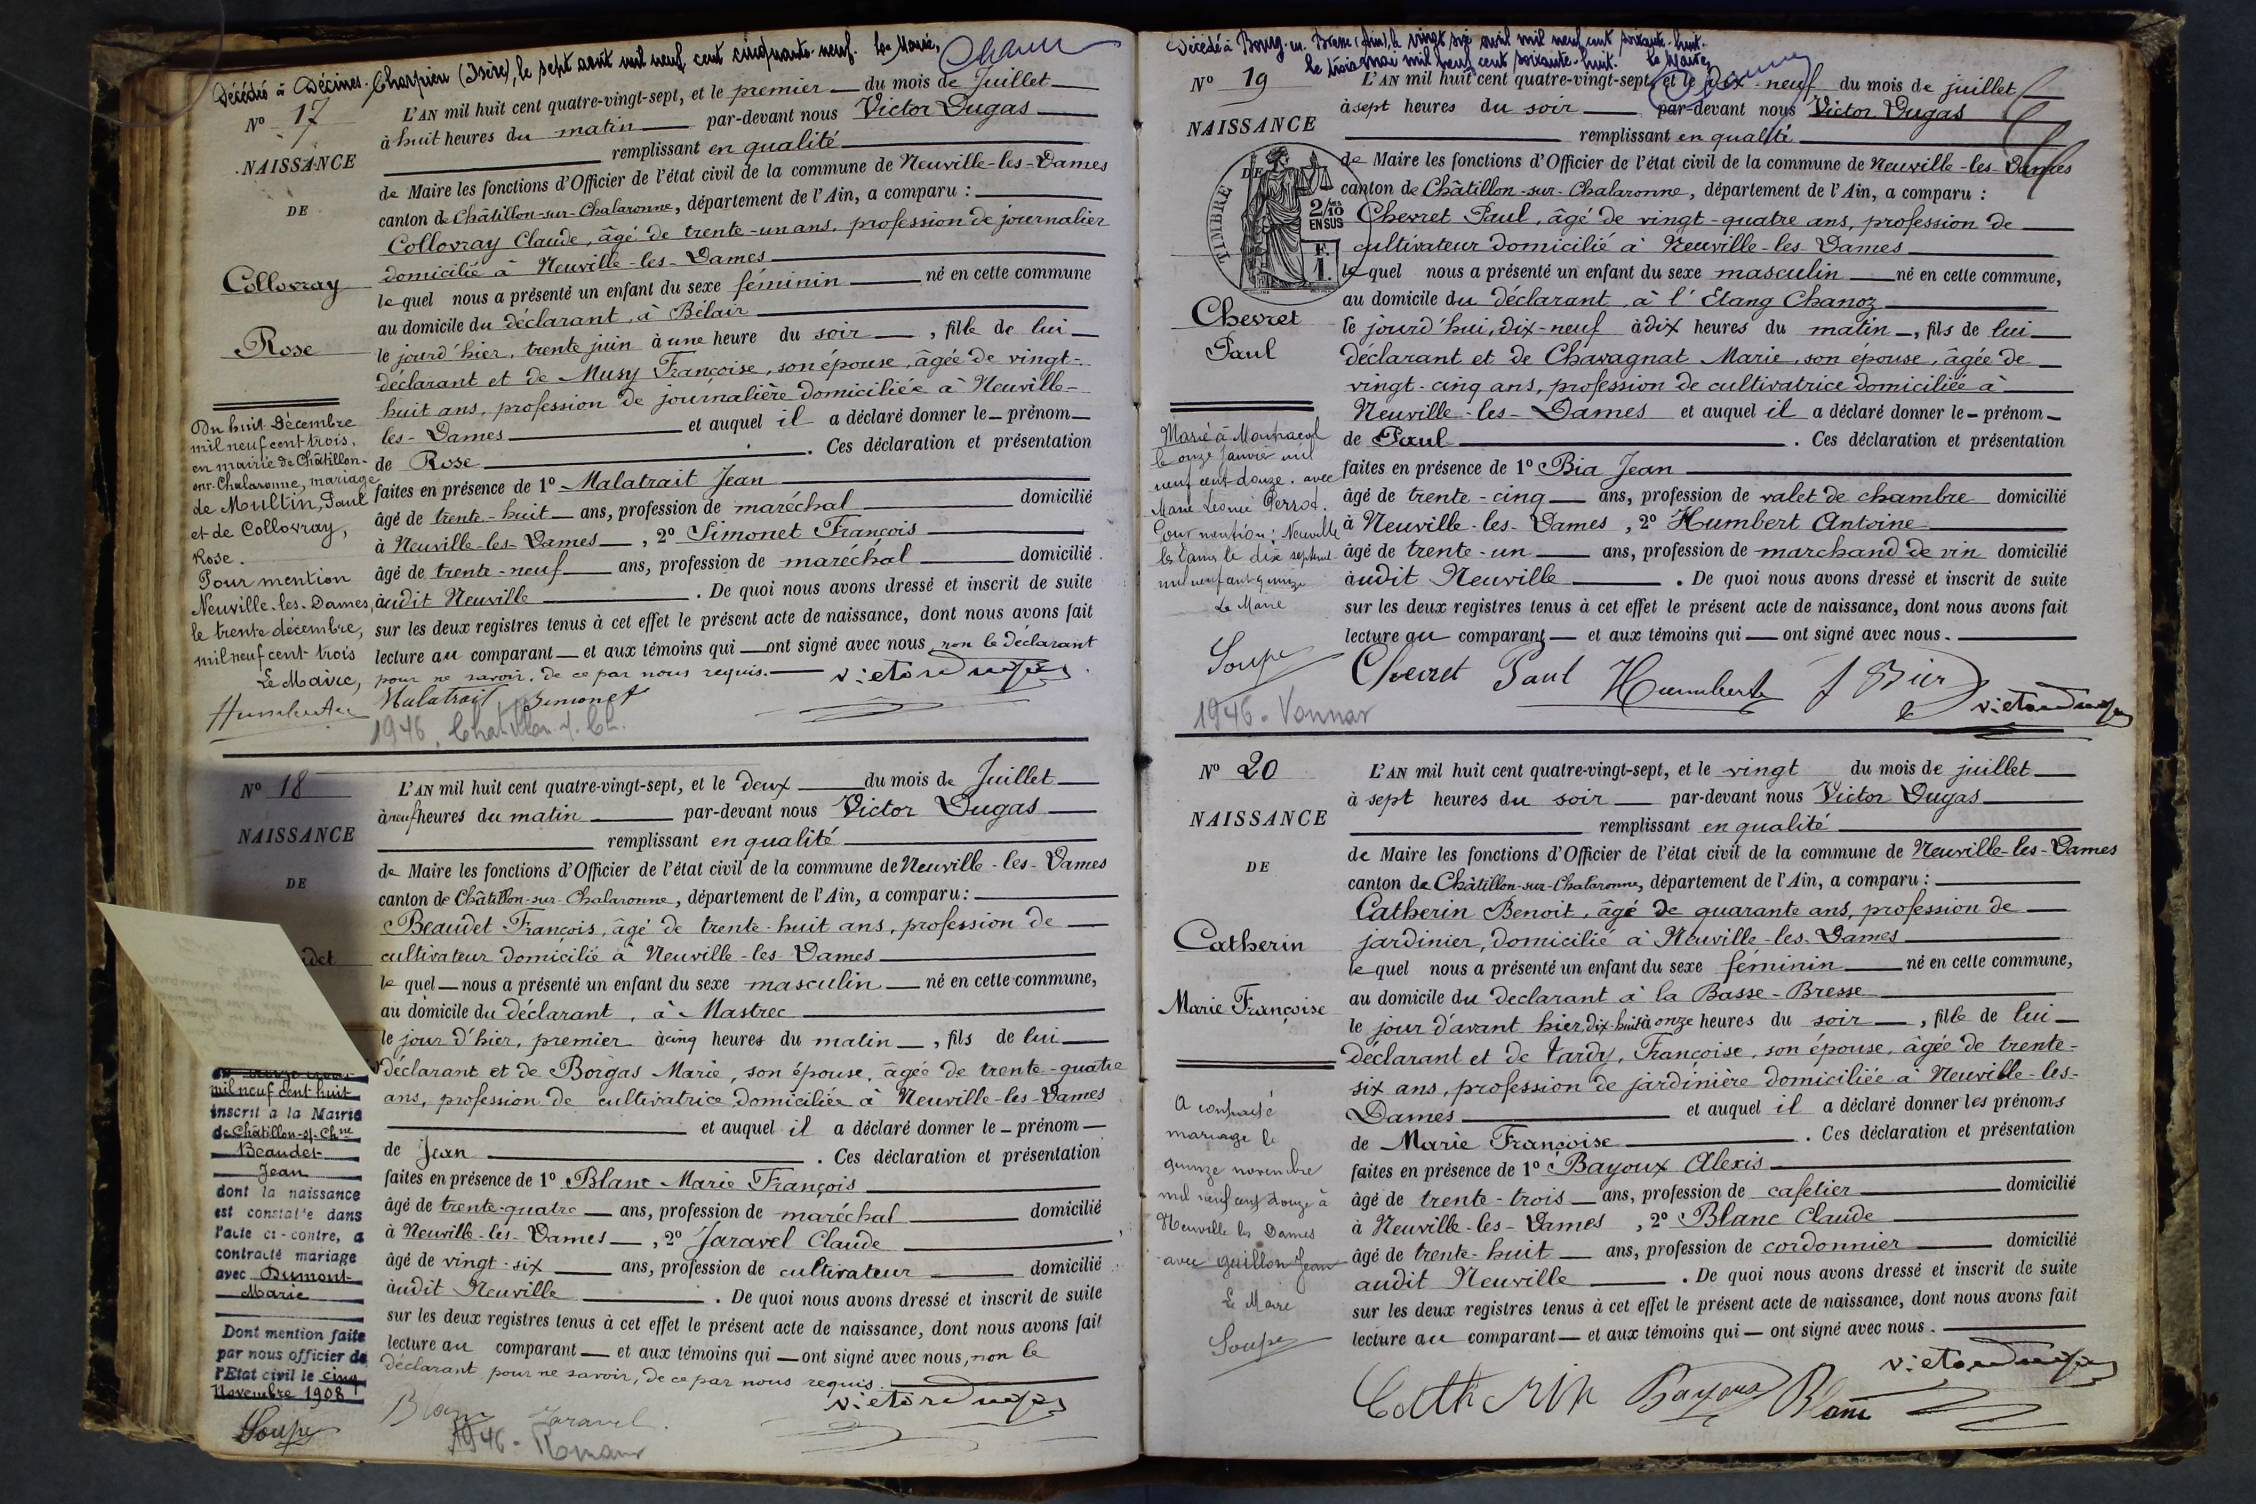 Décédée à Décines-Charpieu (Isère), le sept août mil neuf cent cinquante-neuf. Le Maire,
N° 17
NAISSANCE
DE
Collovray
Rose
L'AN mil huit cent quatre-vingt-sept, et le premier du mois de Juillet
à huit heures du matin par-devant nous Victor Dugas
remplissant en qualité
de Maire les fonctions d'Officier de l'état civil de la commune de Neuville-les-Dames
canton de Châtillon-sur-Chalaronne, département de l'Ain, a comparu :
Collovray Claude, âgé de trente-un ans, profession de journalier
domicilié à Neuville-les-Dames
le quel nous a présenté un enfant du sexe féminin né en cette commune
au domicile du déclarant, à Bélair
le jourd'hier, trente juin à une heure du soir, fille de lui
déclarant et de Musy Françoise, son épouse, âgée de vingt-
huit ans, profession de journalière domiciliée à Neuville-
les-Dames et auquel il a déclaré donner le prénom
de Rose. Ces déclaration et présentation
faites en présence de 1° Malatrait Jean
âgé de trente-huit ans, profession de maréchal domicilié
à Neuville-les-Dames, 2° Simonet François
âgé de trente-neuf ans, profession de maréchal domicilié
audit Neuville. De quoi nous avons dressé et inscrit de suite
sur les deux registres tenus à cet effet le présent acte de naissance, dont nous avons fait
lecture au comparant et aux témoins qui ont signé avec nous non le déclarant
pour ne savoir, de ce par nous requis.
Malatrait Simonet Victor Dugas
1946. Chatillon s. Ch.
Du huit Décembre
mil neuf cent trois,
en mairie de Châtillon-
sur-Chalaronne, mariage
de Multin, Paul
et de Collovray,
Rose.
Pour mention
Neuville-les-Dames,
le trente décembre,
mil neuf cent trois
Le Maire,
N° 18
NAISSANCE
DE
det
L'AN mil huit cent quatre-vingt-sept, et le deux du mois de Juillet
à neuf heures du matin par-devant nous Victor Dugas
remplissant en qualité
de Maire les fonctions d'Officier de l'état civil de la commune de Neuville-les-Dames
canton de Châtillon-sur-Chalaronne, département de l'Ain, a comparu :
Beaudet François, âgé de trente-huit ans, profession de
cultivateur domicilié à Neuville-les-Dames
le quel nous a présenté un enfant du sexe masculin né en cette commune,
au domicile du déclarant, à Mastrec
le jour d'hier, premier à cinq heures du matin, fils de lui
déclarant et de Borgas Marie, son épouse, âgée de trente-quatre
ans, profession de cultivatrice domiciliée à Neuville-les-Dames
et auquel il a déclaré donner le prénom
de Jean. Ces déclaration et présentation
faites en présence de 1° Blanc Marie François
âgé de trente-quatre ans, profession de maréchal domicilié
à Neuville-les-Dames, 2° Jaravel Claude
âgé de vingt-six ans, profession de cultivateur domicilié
audit Neuville. De quoi nous avons dressé et inscrit de suite
sur les deux registres tenus à cet effet le présent acte de naissance, dont nous avons fait
lecture au comparant et aux témoins qui ont signé avec nous, non le
déclarant pour ne savoir, de ce par nous requis.
Blanc Jaravel Victor Dugas
1946
mil neuf cent huit
inscrit à la Mairie
de Châtillon-s/-Chne
Beaudet
Jean
dont la naissance
est constatée dans
l'acte ci-contre, a
contracté mariage
avec Dumont
Marie
Dont mention faite
par nous officier de
l'Etat civil le cinq
Novembre 1908
Soupe
Décédé à Bourg-en-Bresse (Ain), le vingt six avril mil neuf cent soixante-huit.
Le trois mai mil neuf cent soixante-huit. Le Maire,
N° 19
NAISSANCE
DE
TIMBRE
2/10
EN SUS
F.
1.
Chevret
Paul
L'AN mil huit cent quatre-vingt-sept, et le dix-neuf du mois de juillet
à sept heures du soir par-devant nous Victor Dugas
remplissant en qualité
de Maire les fonctions d'Officier de l'état civil de la commune de Neuville-les-Dames
canton de Châtillon-sur-Chalaronne, département de l'Ain, a comparu :
Chevret Paul, âgé de vingt-quatre ans, profession de
cultivateur domicilié à Neuville-les-Dames
le quel nous a présenté un enfant du sexe masculin né en cette commune,
au domicile du déclarant, à l'Etang Chanoz
le jourd'hui, dix-neuf à dix heures du matin, fils de lui
déclarant et de Chavagnat Marie, son épouse, âgée de
vingt-cinq ans, profession de cultivatrice domiciliée à
Neuville-les-Dames et auquel il a déclaré donner le prénom
de Paul. Ces déclaration et présentation
faites en présence de 1° Bia Jean
âgé de trente-cinq ans, profession de valet de chambre domicilié
à Neuville-les-Dames, 2° Humbert Antoine
âgé de trente-un ans, profession de marchand de vin domicilié
audit Neuville. De quoi nous avons dressé et inscrit de suite
sur les deux registres tenus à cet effet le présent acte de naissance, dont nous avons fait
lecture au comparant et aux témoins qui ont signé avec nous.
Chevret Paul Humbert Victor Dugas
1946. Vonnas
Marié à Montracol
le onze Janvier mil
neuf cent douze. avec
Marie Léonie Perrod.
Pour mention : Neuville
les Dames le dix septembre
mil neuf cent quinze
Le Maire
Soupe
N° 20
NAISSANCE
DE
Catherin
Marie Françoise
L'AN mil huit cent quatre-vingt-sept, et le vingt du mois de juillet
à sept heures du soir par-devant nous Victor Dugas
remplissant en qualité
de Maire les fonctions d'Officier de l'état civil de la commune de Neuville-les-Dames
canton de Châtillon-sur-Chalaronne, département de l'Ain, a comparu :
Catherin Benoit, âgé de quarante ans, profession de
jardinier, domicilié à Neuville-les-Dames
le quel nous a présenté un enfant du sexe féminin né en cette commune,
au domicile du déclarant à la Basse-Bresse
le jour d'avant hier dix-huit à onze heures du soir, fille de lui
déclarant et de Tardy, Françoise, son épouse, âgée de trente-
six ans, profession de jardinière domiciliée à Neuville-les-
Dames et auquel il a déclaré donner les prénoms
de Marie Françoise. Ces déclaration et présentation
faites en présence de 1° Bayoux Alexis
âgé de trente-trois ans, profession de cafetier domicilié
à Neuville-les-Dames, 2° Blanc Claude
âgé de trente-huit ans, profession de cordonnier domicilié
audit Neuville. De quoi nous avons dressé et inscrit de suite
sur les deux registres tenus à cet effet le présent acte de naissance, dont nous avons fait
lecture au comparant et aux témoins qui ont signé avec nous.
Victor Dugas
Catherin Bayoux Blanc
A contracté
mariage le
quinze novembre
mil neuf cent douze à
Neuville les Dames
avec Guillon Jean
Le Maire
Soupe